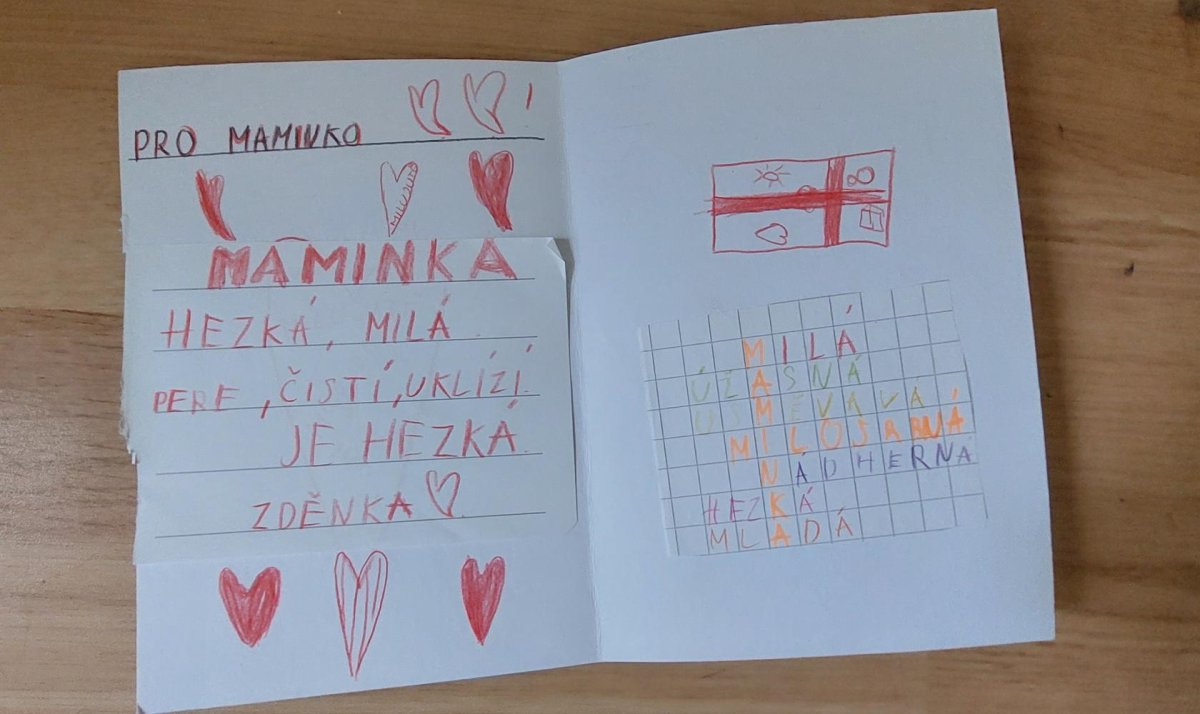 PRO MAMINKO
MAMINKA
HEZKÁ, MILÁ
PERE, ČISTÍ, UKLÍZÍ.
JE HEZKÁ
ZDĚNKA
MILÁ
ÚŽASNÁ
USMĚVAVÁ
MILOSRNÁ
NÁDHERNÁ
HEZKÁ
MLADÁ